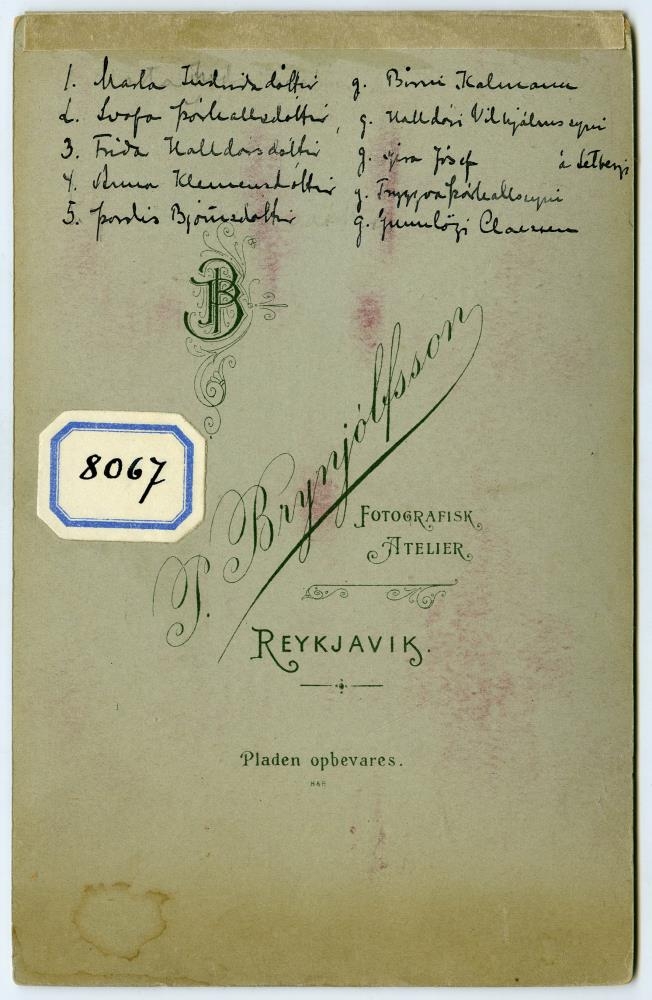 1. Marta Indriðadóttir g. Birni Kalmann
2. Svafa Þórhallsdóttir, g. Halldóri Vilhjálmssyni
3. Fríða Halldórsdóttir g. síra Jósef á Setbergi
4. Anna Klemensdóttir g. Tryggva Þórhallssyni
5. Þórdís Björnsdóttir g. Gunnlögi Claessen
PB
8067
P. Brynjólfsson
FOTOGRAFISK
ATELIER
REYKJAVIK.
Pladen opbevares.
H&H